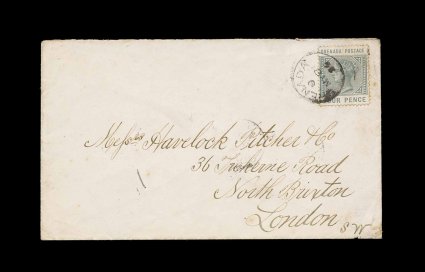 GRENADA POSTAGE
FOUR PENCE
Messrs Havelock Pitcher & Co
36 Road
North Brixton
London
S W